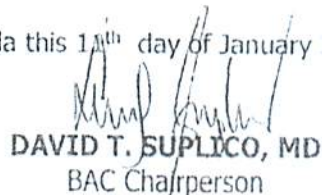 la this 11th day of January
DAVID T. SUPLICO, MD
BAC Chairperson